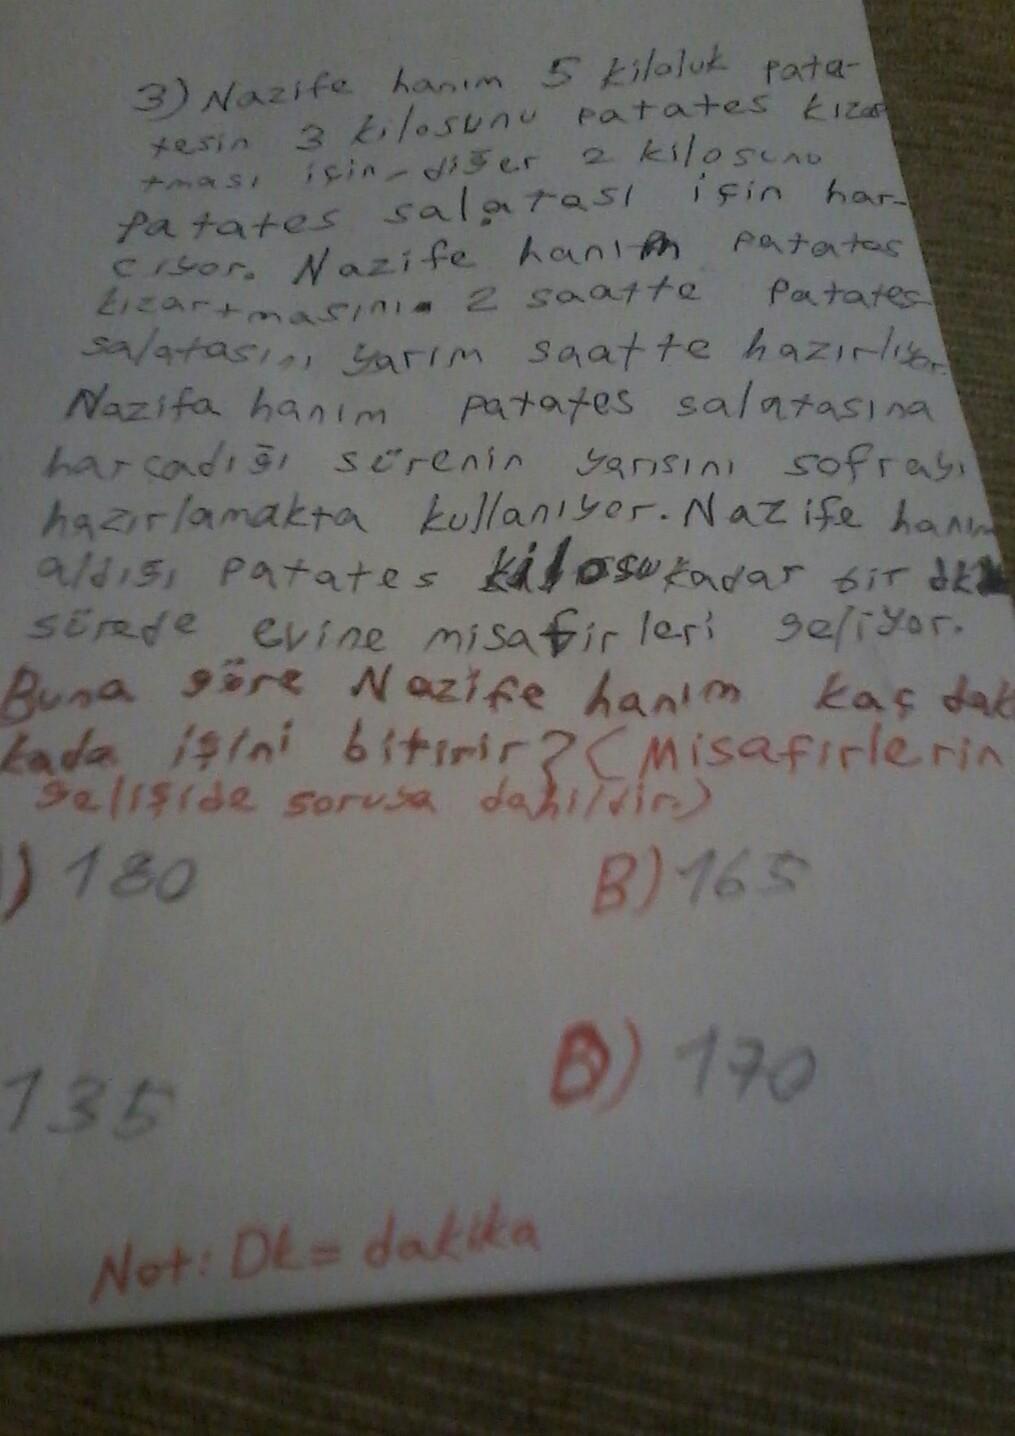 3) Nazife hanım 5 kiloluk pata-
tesin 3 kilosunu patates kızar
tması için diğer 2 kilosunu
patates salatası için har-
cıyor. Nazife hanım patates
kızartmasını 2 saatte patates
salatasını yarım saatte hazırlıyor.
Nazifa hanım patates salatasına
harcadığı sürenin yarısını sofrayı
hazırlamakta kullanıyor. Nazife hanım
aldığı patates kilosu kadar bir dk
sürede evine misafirleri geliyor.
Buna göre Nazife hanım kaç dak
kada işini bitirir? (Misafirlerin
gelişide soruya dahildir.)
) 180 B) 165
135 D) 170
Not: Dk = dakika